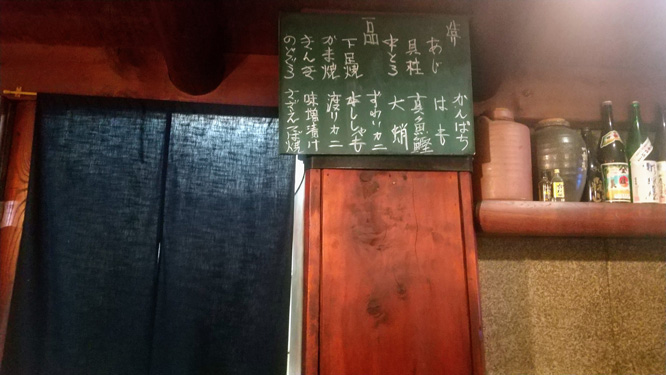 かんぱち
あじ はも
貝柱 真魚鰹
中とろ 大蛸
一品 ずわいカニ
下足焼 本ししゃも
かま焼 渡りカニ
さんま 味噌漬け
のどぐろ さざえつぼ焼